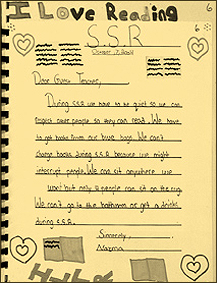 I Love Reading
6
6
S.S.R
October
Dear Guest Teacher,
During S.S.R we have to be quiet so we can
respect other people so they can read. We have
to get books from our blue bags. We can't
change books during S.S.R because we might
interrupt people. We can sit anywhere we
want but only 4 people can sit on the rug.
We can't go to the bathroom or get a drink
during S.S.R.
Sincerely,